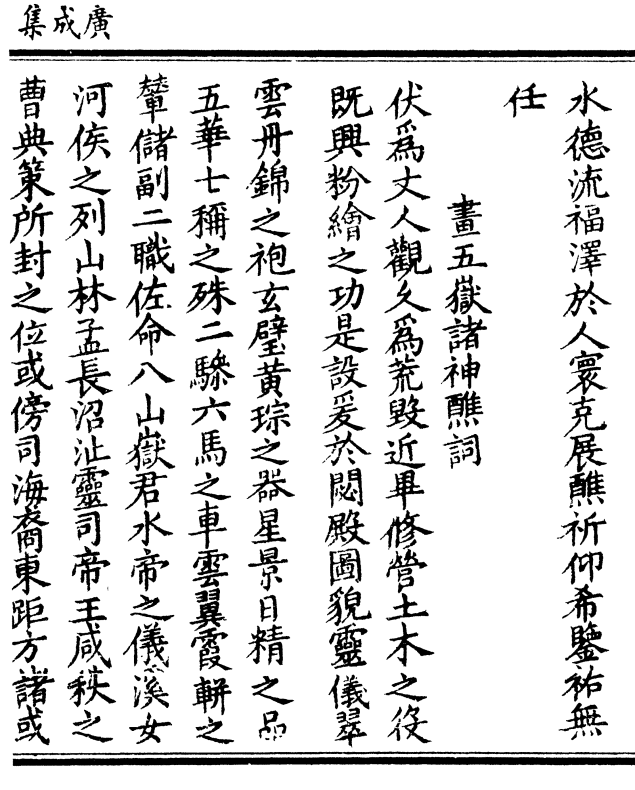 廣成集
水德流福澤於人寰克展醮祈仰希鑒祐無
任
畫五嶽諸神醮詞
伏爲丈人觀久爲荒毀近畢修營土木之役
既興粉繪之功是設爰於閟殿圖貌靈儀翠
雲丹錦之袍玄璧黃琮之器星景日精之品
五華七稱之殊二驂六馬之車雲翼霞輧之
輦儲副二職佐命八山嶽君水帝之儀溪女
河侯之列山林孟長沼沚靈司帝王咸秩之
曹典策所封之位或傍司海裔東距方諸或